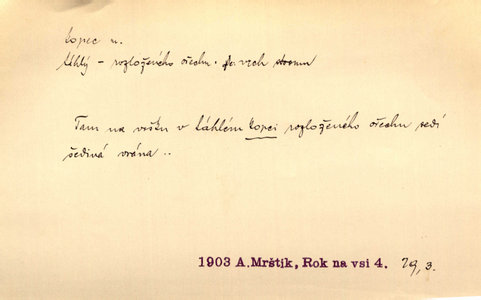 kopec m.
táhlý – rozloženého ořechu. po vrch stromu
Tam na vršku v táhlém kopci rozloženého ořechu sedí
šedivá vrána ..
1903 A. Mrštík, Rok na vsi 4. 29, 3.